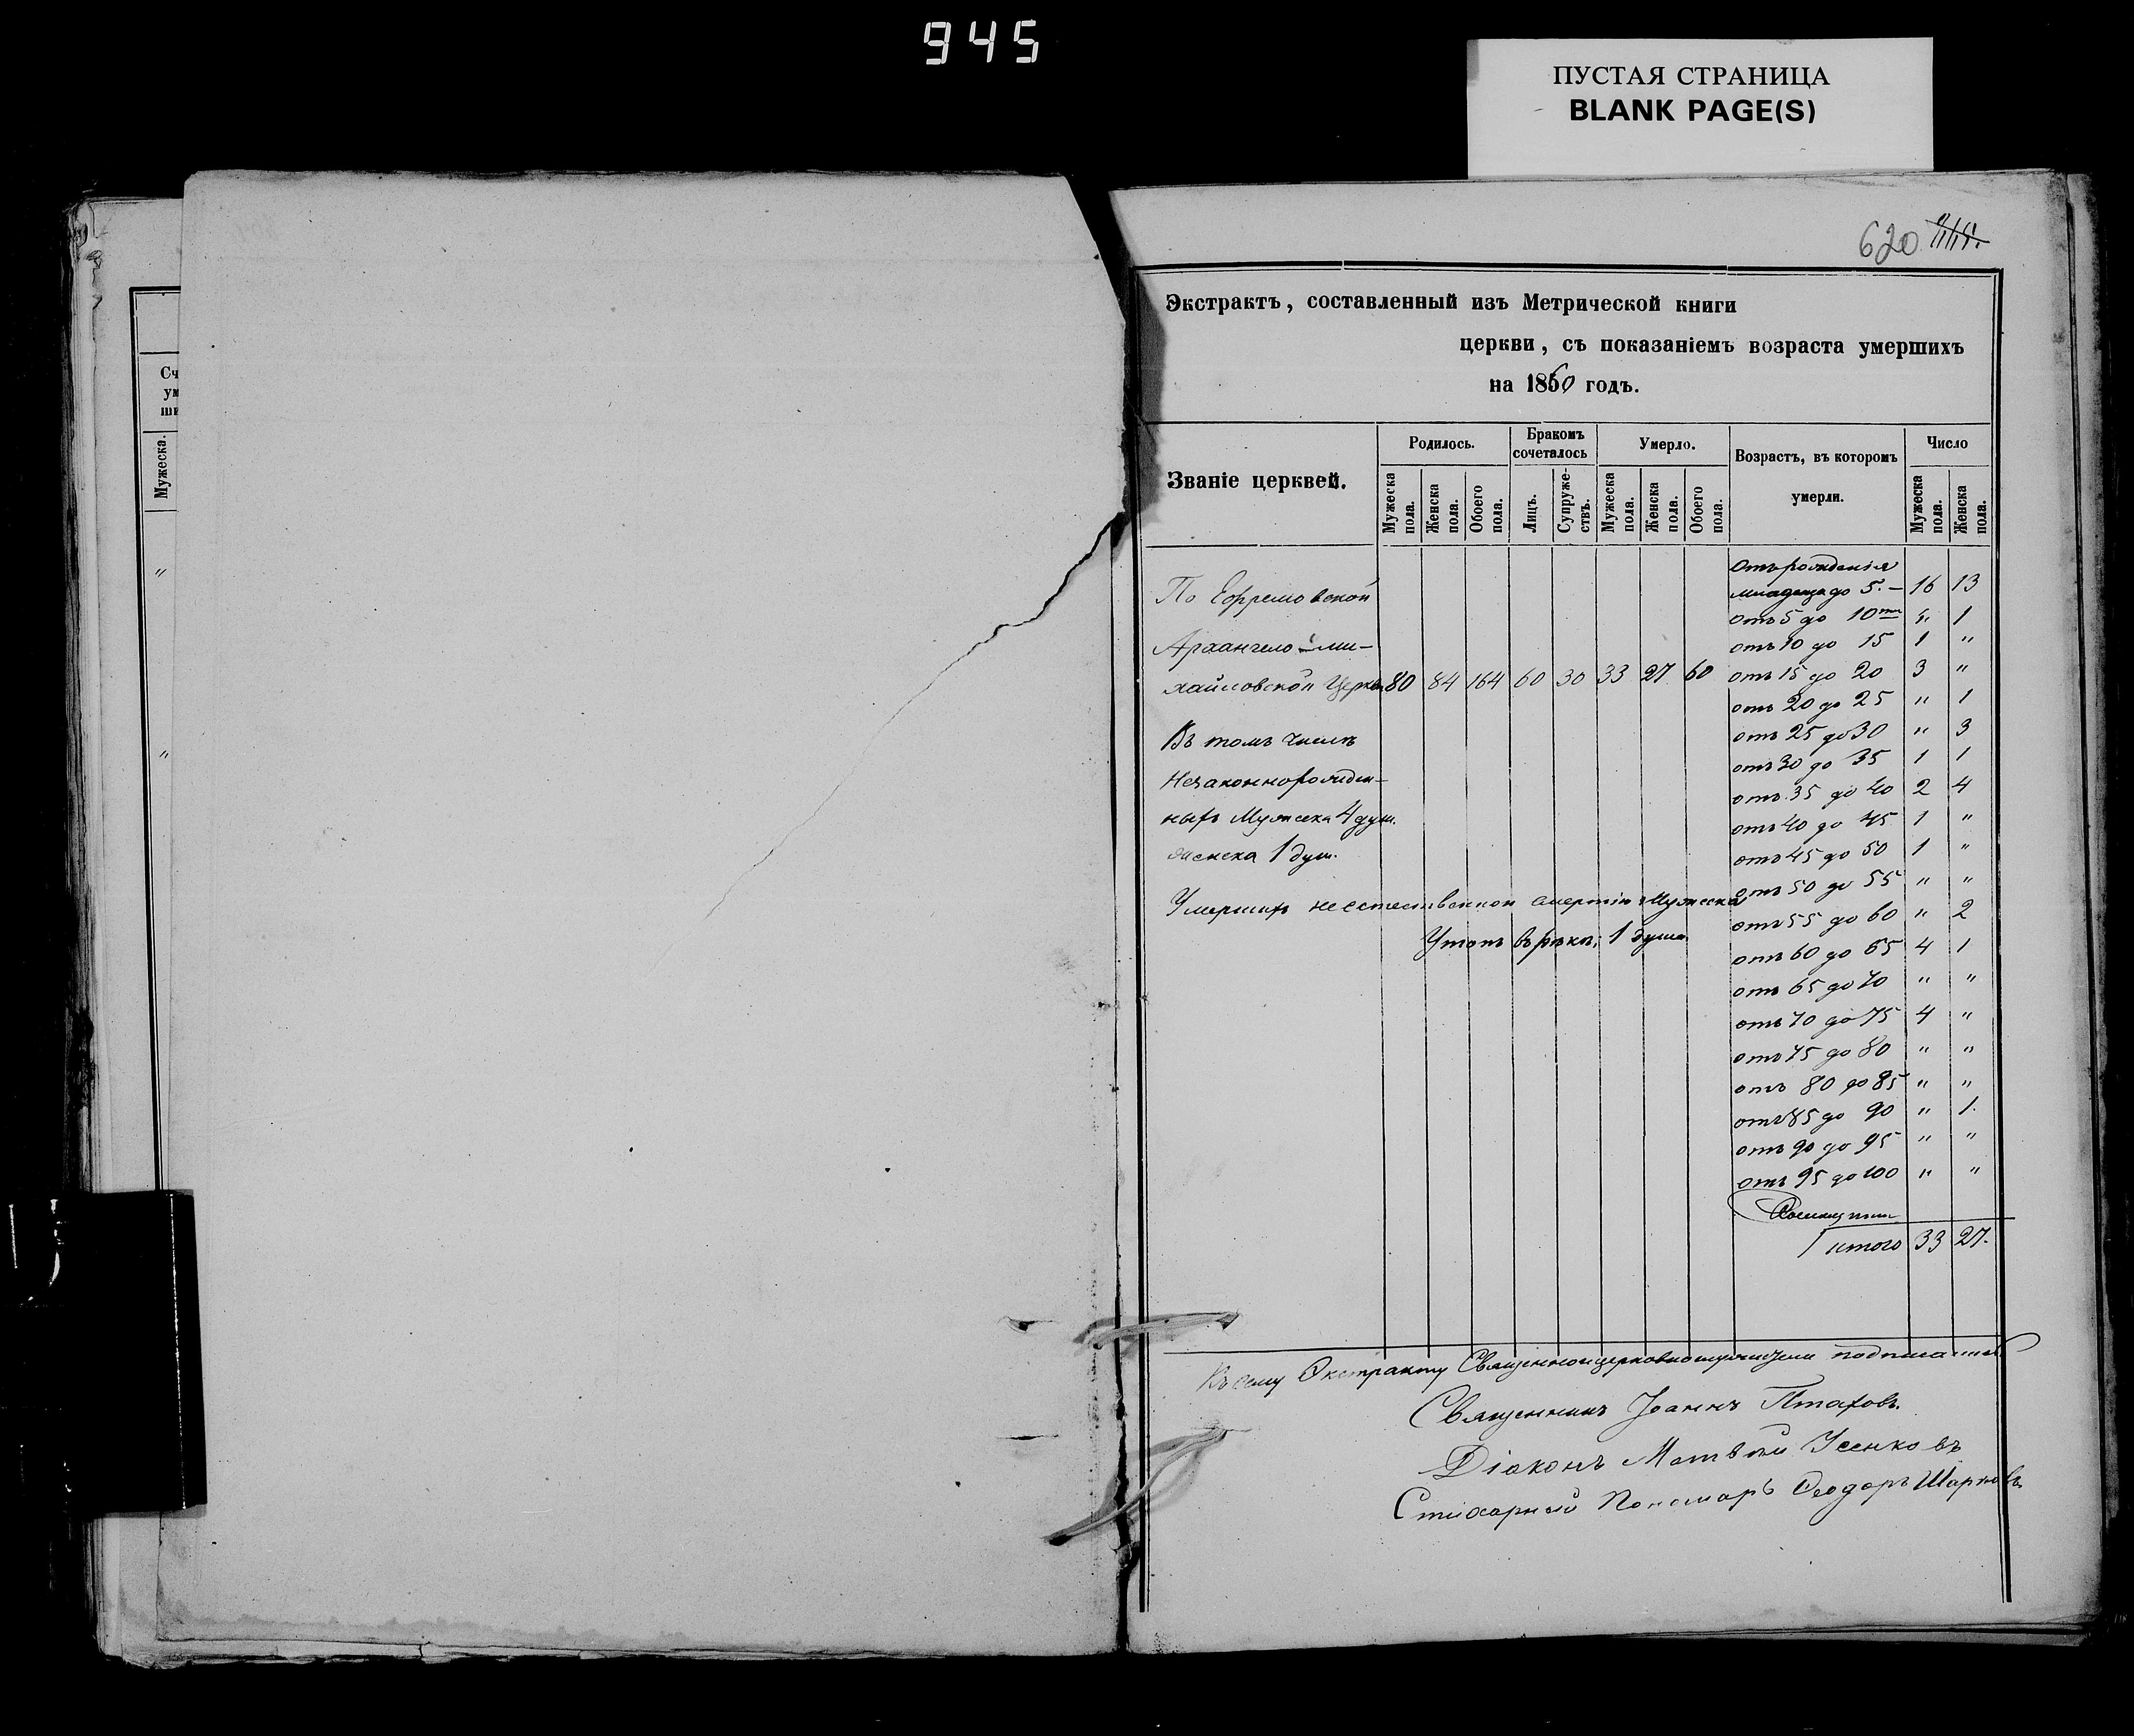 945
ПУСТАЯ СТРАНИЦА
BLANK PAGE(S)
620
Сч
ум
ши
Мужеска.
"
"
Экстрактъ, составленный изъ Метрической книги
церкви, съ показаніемъ возраста умершихъ
на 1860 годъ.
Званіе церквей.
Родилось.
Бракомъ сочеталось
Умерло.
Возрастъ, въ которомъ умерли.
Число
Мужеска пола.
Женска пола.
Обоего пола.
Лицъ.
Супружествъ.
Мужеска пола.
Женска пола.
Обоего пола.
Мужеска пола.
Женска пола.
По Ефремовской
Архангело Ми-
хайловской Церкви 80 84 164 60 30 33 27 60
Въ томъ числѣ
Незаконнорожден-
ныхъ Мужеска 4 душ.
женска 1 душ.
Умершихъ неестественной смертію Мужеска
Утопъ въ рѣкѣ, 1 душа
Отъ рожденія
младенца до 5.- 16 13
отъ 5 до 10ти " 1
отъ 10 до 15 1 "
отъ 15 до 20 3 "
отъ 20 до 25 " 1
отъ 25 до 30 " 3
отъ 30 до 35 1 1
отъ 35 до 40 2 4
отъ 40 до 45 1 "
отъ 45 до 50 1 "
отъ 50 до 55 " "
отъ 55 до 60 " 2
отъ 60 до 65 4 1
отъ 65 до 70 " "
отъ 70 до 75 4 "
отъ 75 до 80 " "
отъ 80 до 85 " "
отъ 85 до 90 " 1.
отъ 90 до 95 " "
отъ 95 до 100 " "
итого 33 27.
Къ сему Экстракту Священноцерковнослужители подписались
Священникъ Іоаннъ Птаховъ.
Діаконъ Матвѣй Усенковъ
Стихарный Пономарь Ѳеодоръ